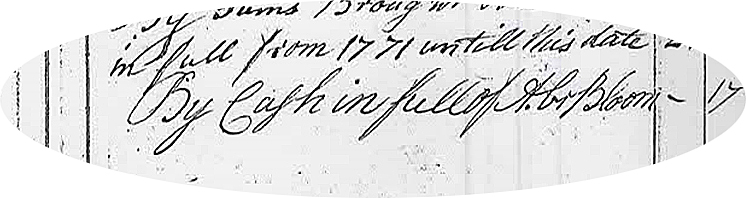 By Sums Brough
in full from 1771 untill this date
By Cash in full of Abr Bloom – 17